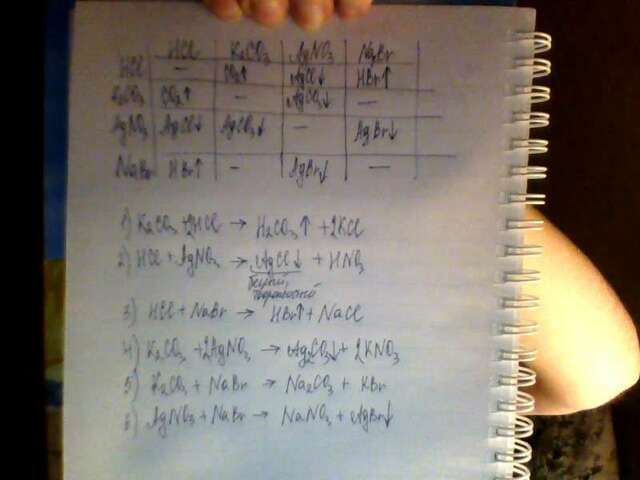 HCl K₂CO₃ AgNO₃ NaBr
HCl — CO₂↑ AgCl↓ HBr↑
K₂CO₃ CO₂↑ — AgCO₃↓ —
AgNO₃ AgCl↓ AgCO₃↓ — AgBr↓
NaBr HBr↑ — AgBr↓ —
1) K₂CO₃ + 2HCl → H₂CO₃↑ + 2KCl
2) HCl + AgNO₃ → AgCl↓ + HNO₃
белый,
творожистый
3) HCl + NaBr → HBr↑ + NaCl
4) K₂CO₃ + 2AgNO₃ → Ag₂CO₃↓ + 2KNO₃
5) K₂CO₃ + NaBr → Na₂CO₃ + KBr
6) AgNO₃ + NaBr → NaNO₃ + AgBr↓